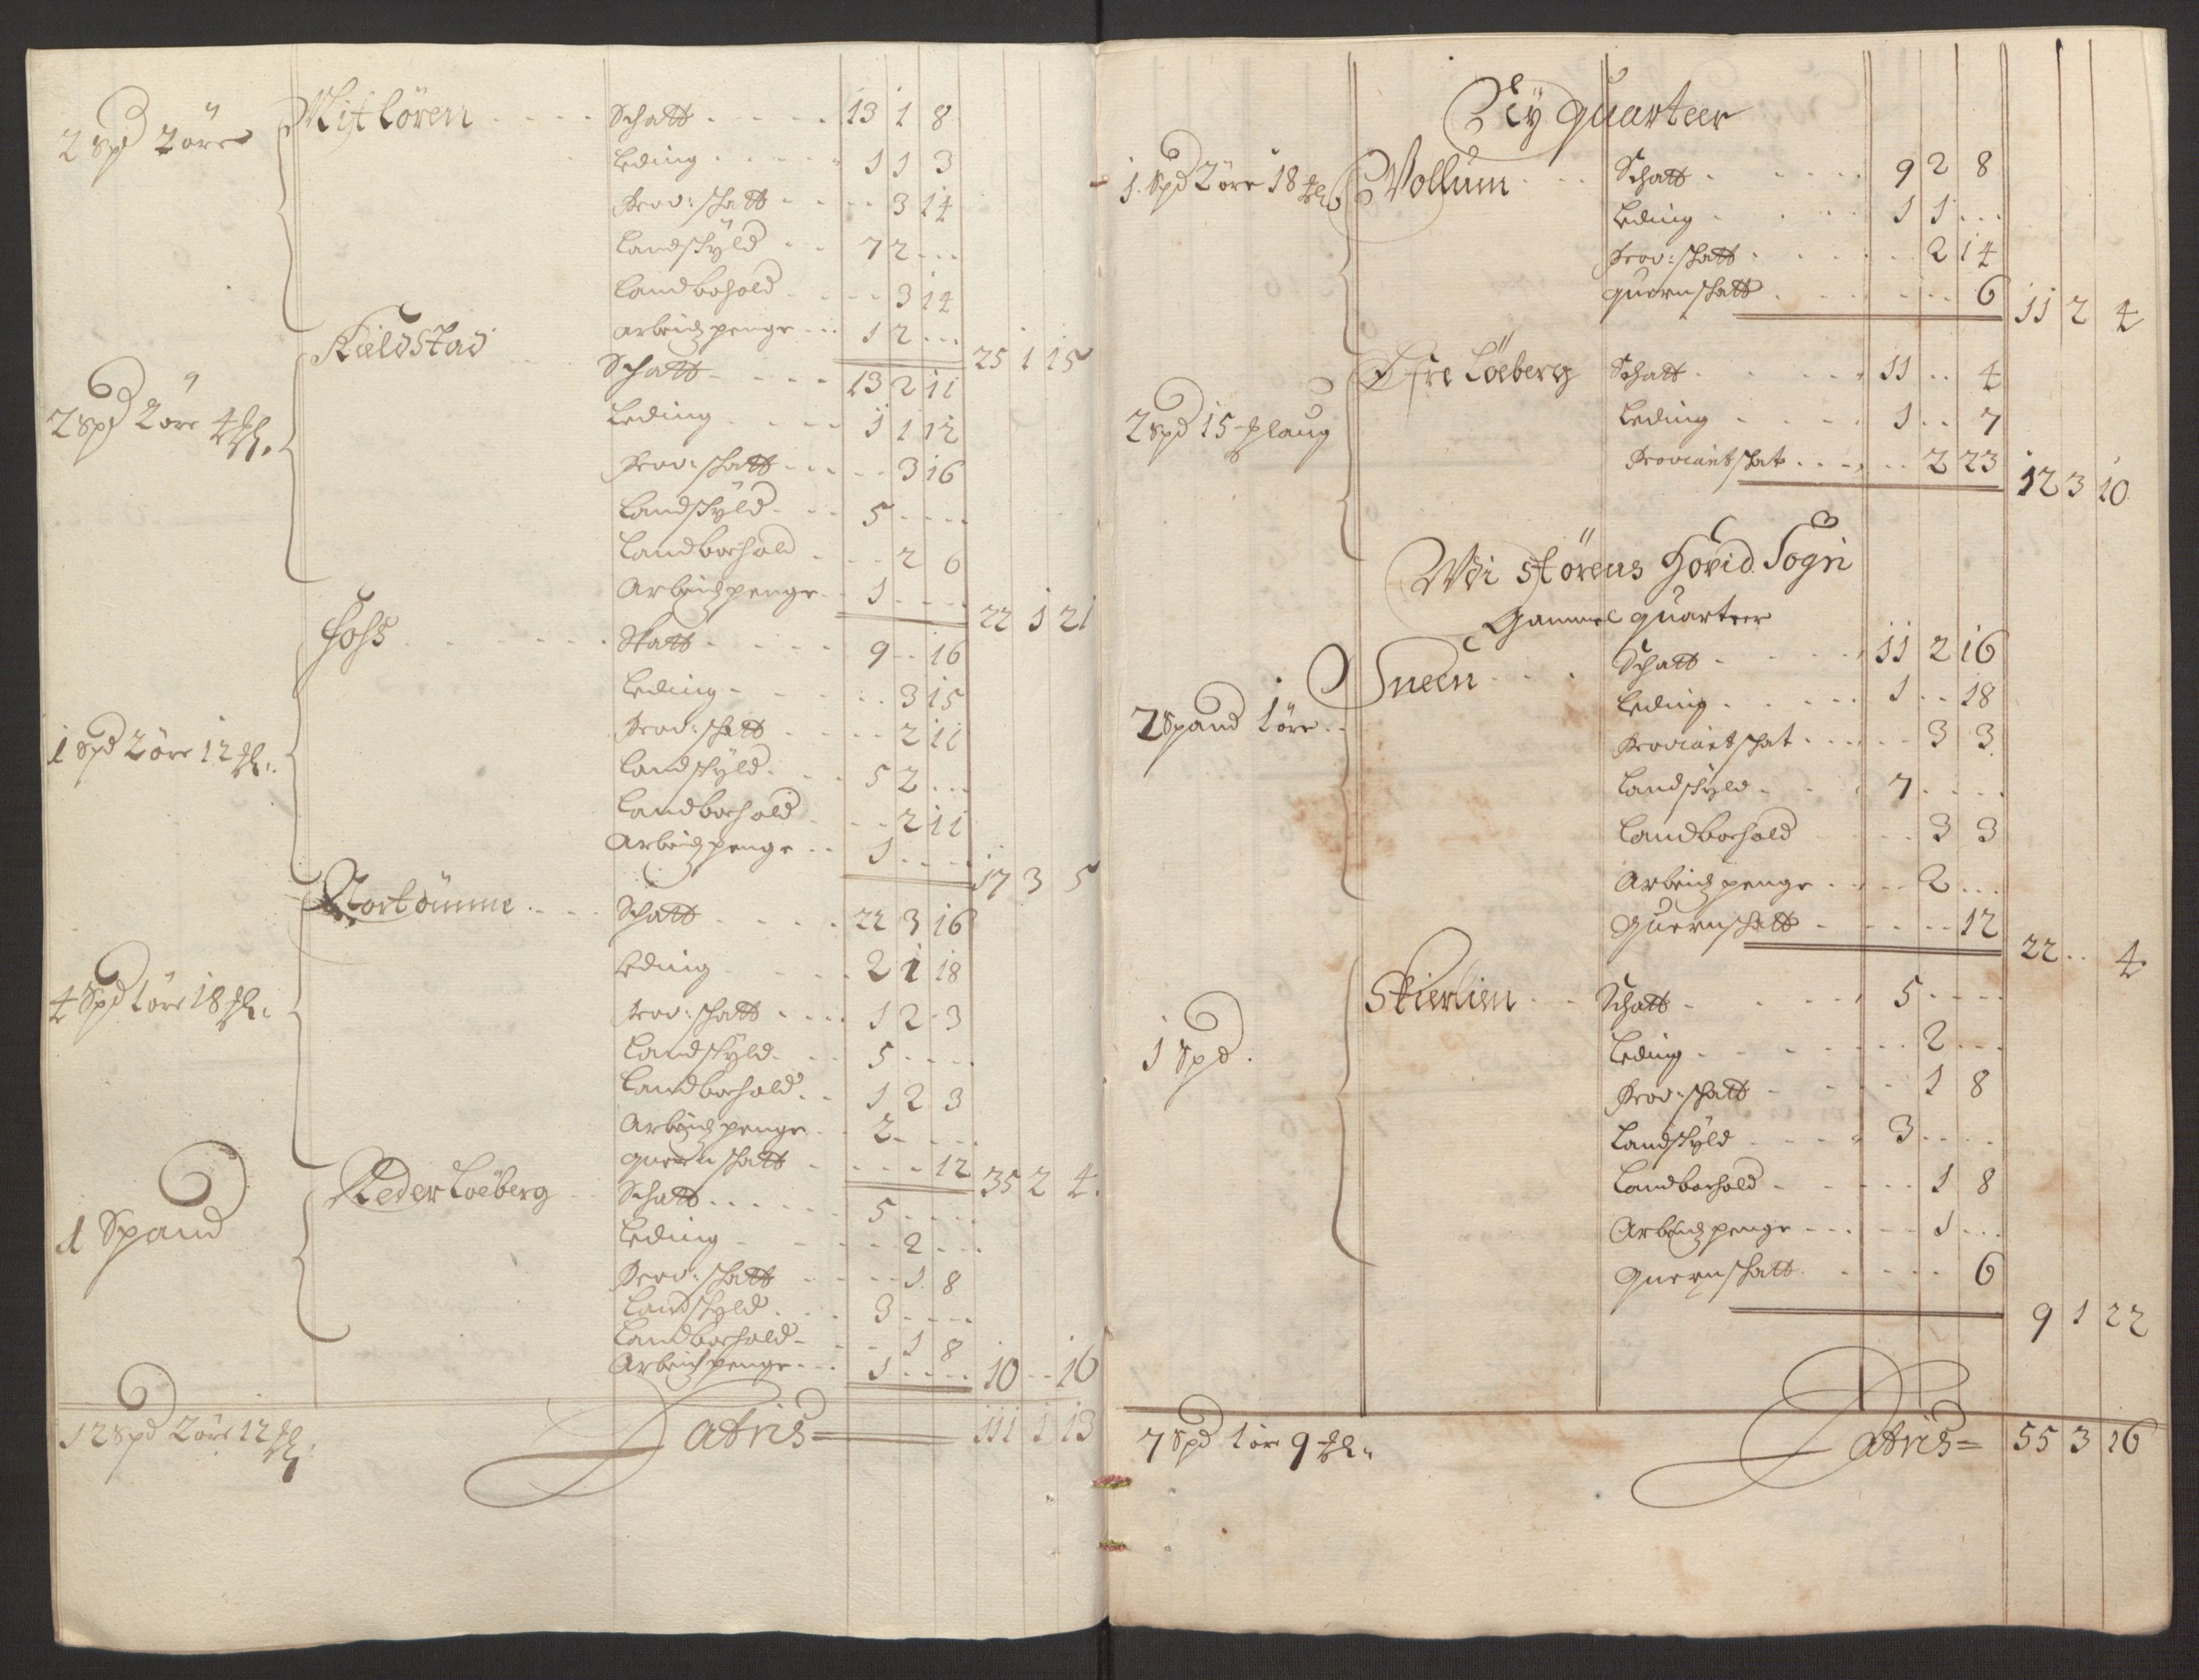 2 Spd 2 öre Mitlören Schatt 13 1 8
Leding 1 1 3
Prov: schatt 3 14
Landskyld 7 2
Landbohold 3 14
arbeidzpenge 1 2
25 1 15
2 Spd 2 öre 4 Kieldstad Schatt 13 2 11
Leding 1 1 12
Prov: schatt 3 16
Landskyld 5
Landborhold 2 6
Arbeidzpenge 1
22 1 21
1 Spd 2 öre 12 Foss Skatt 9 16
Leding 3 15
Prov: schatt 2 11
Landskyld 5 2
Landborhold 2 11
Arbeidzpenge 1
17 3 5
4 Spd 1 öre 18 Nortömme Schatt 22 3 16
Leding 2 1 18
Prov: schatt 1 2 3
Landskyld 5
Landborhold 1 2 3
Arbeidzpenge 2
quern schatt 12
35 2 4
1 Spand Neder Löeberg Schatt 5
Leding 2
Prov: schatt 1 8
Landskyld 3
Landborhold 1 8
Arbeidzpenge 1
10 16
12 Spd 2 öre 12 Latris 111 1 13
Ny quarteer
1. Spd 2 öre 18 Vollum Schatt 9 2 8
Leding 1 1
Prov: schatt 2 14
quernschatt 6
11 2 4
2 Spd 15 laug Öfre Löeberg Schatt 11 4
Leding 1 7
Proviantschat 2 23
12 3 10
Wdi störens Hovid Sogn
Gammel quarteer
2 Spand 1 öre Sneen Schatt 11 2 16
Leding 1 18
Proviantschat 3 3
Landskyld 7
Landborhold 3 3
Arbeidzpenge 2
Quernschatt 12
22 4
1 Spd. Skierlien Schatt 5
Leding 2
Prov: schatt 1 8
Landskyld 3
Landborhold 1 8
Arbeidzpenge 1
Quernschatt 6
9 1 22
7 Spd 1 öre 9 Latris 55 3 16